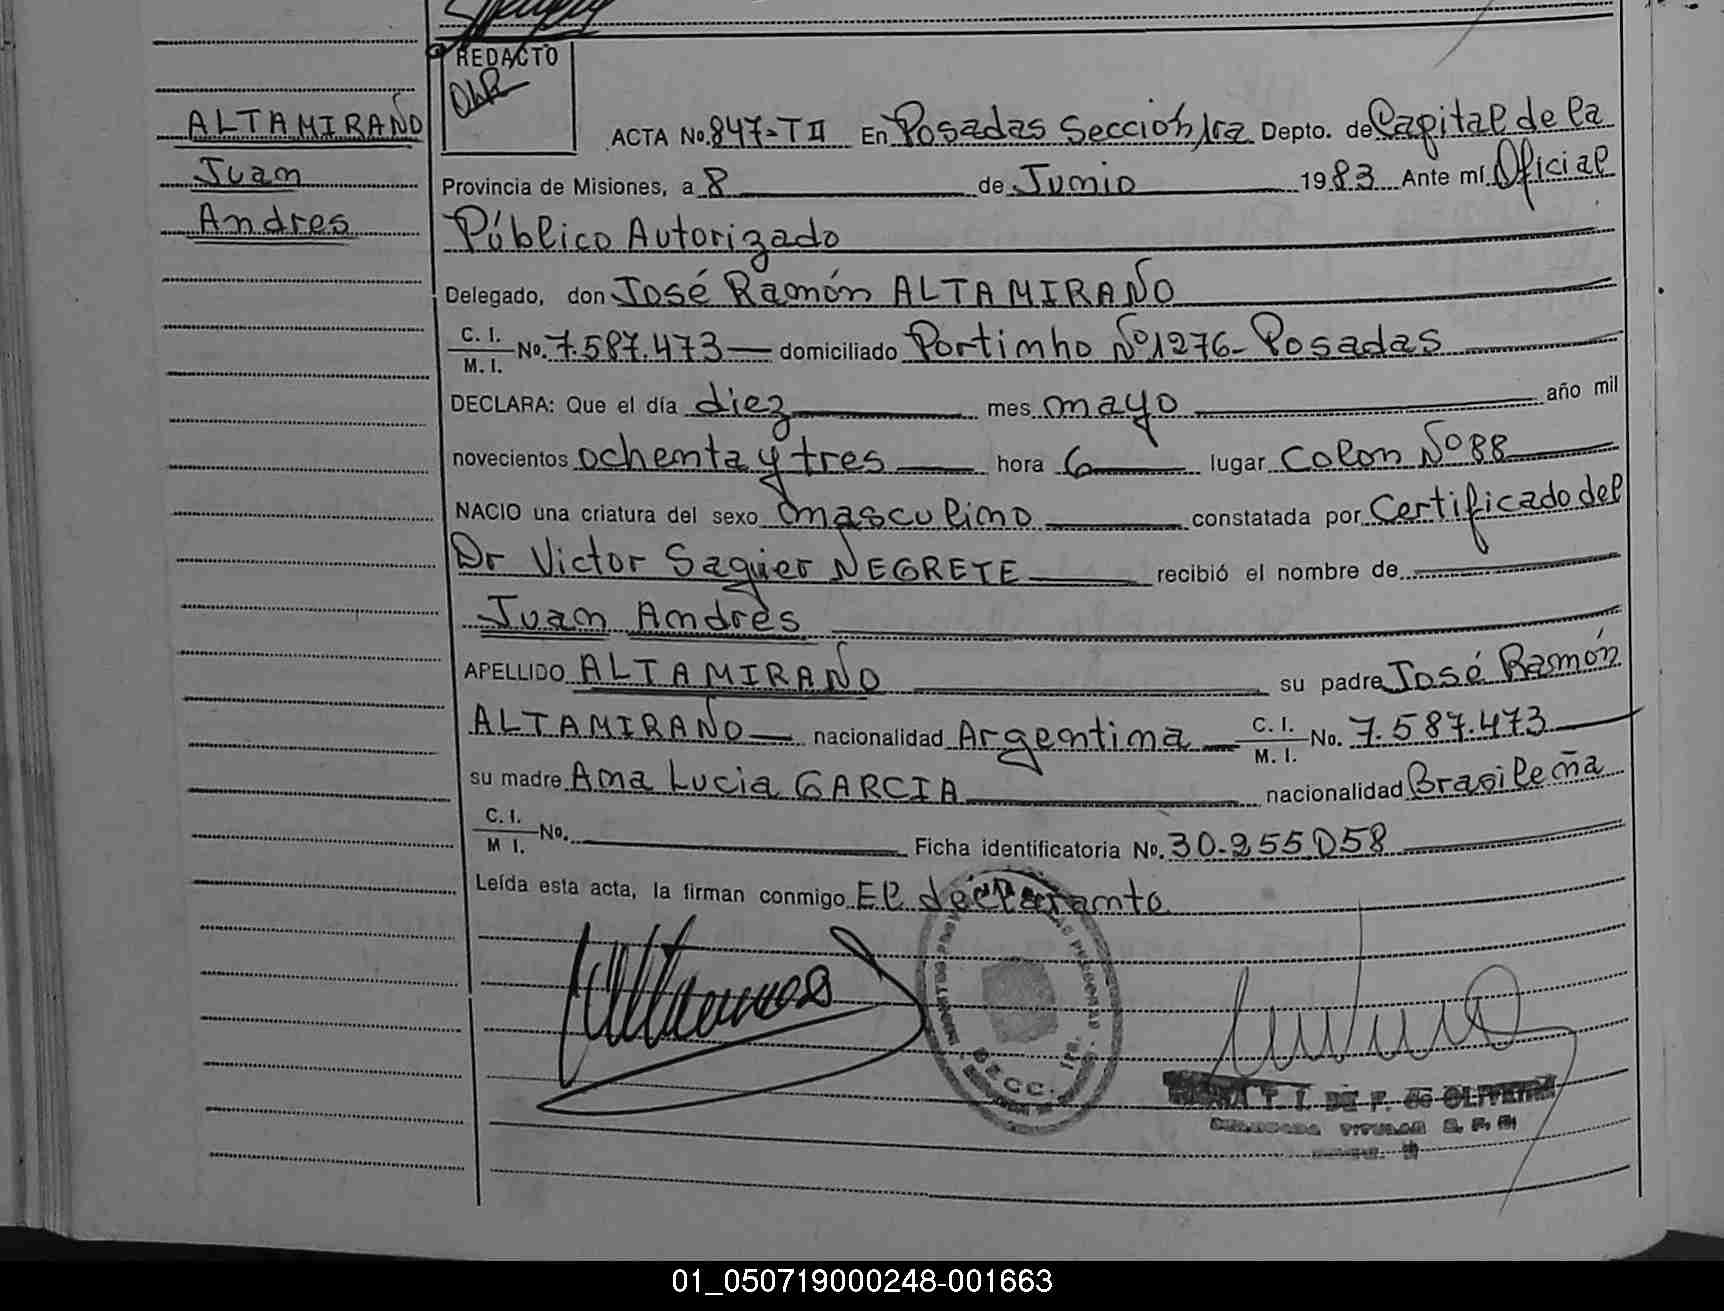 REDACTO
ALTAMIRAÑO
Juan
Andres
ACTA No. 847-T II En Posadas Sección 1ra Depto. de Capital de la
Provincia de Misiones, a 8 de Junio 1983 Ante mí Oficial
Público Autorizado
Delegado, don José Ramón ALTAMIRAÑO
C. I. M. I. No. 7.587.473 domiciliado Portinho Nº 1276- Posadas
DECLARA: Que el día diez mes mayo año mil
novecientos ochenta y tres hora 6 lugar Colon Nº 88
NACIO una criatura del sexo masculino constatada por Certificado del
Dr Victor Saguier NEGRETE recibió el nombre de
Juan Andrés
APELLIDO ALTAMIRAÑO su padre José Ramón
ALTAMIRAÑO nacionalidad Argentina C. I. M. I. No. 7.587.473
su madre Ana Lucia GARCIA nacionalidad Brasileña
C. I. M I. No. Ficha identificatoria No. 30.255.058
Leída esta acta, la firman conmigo El declarante
T. I. DE F. de OLIVEIRA
TITULAR
01_050719000248-001663